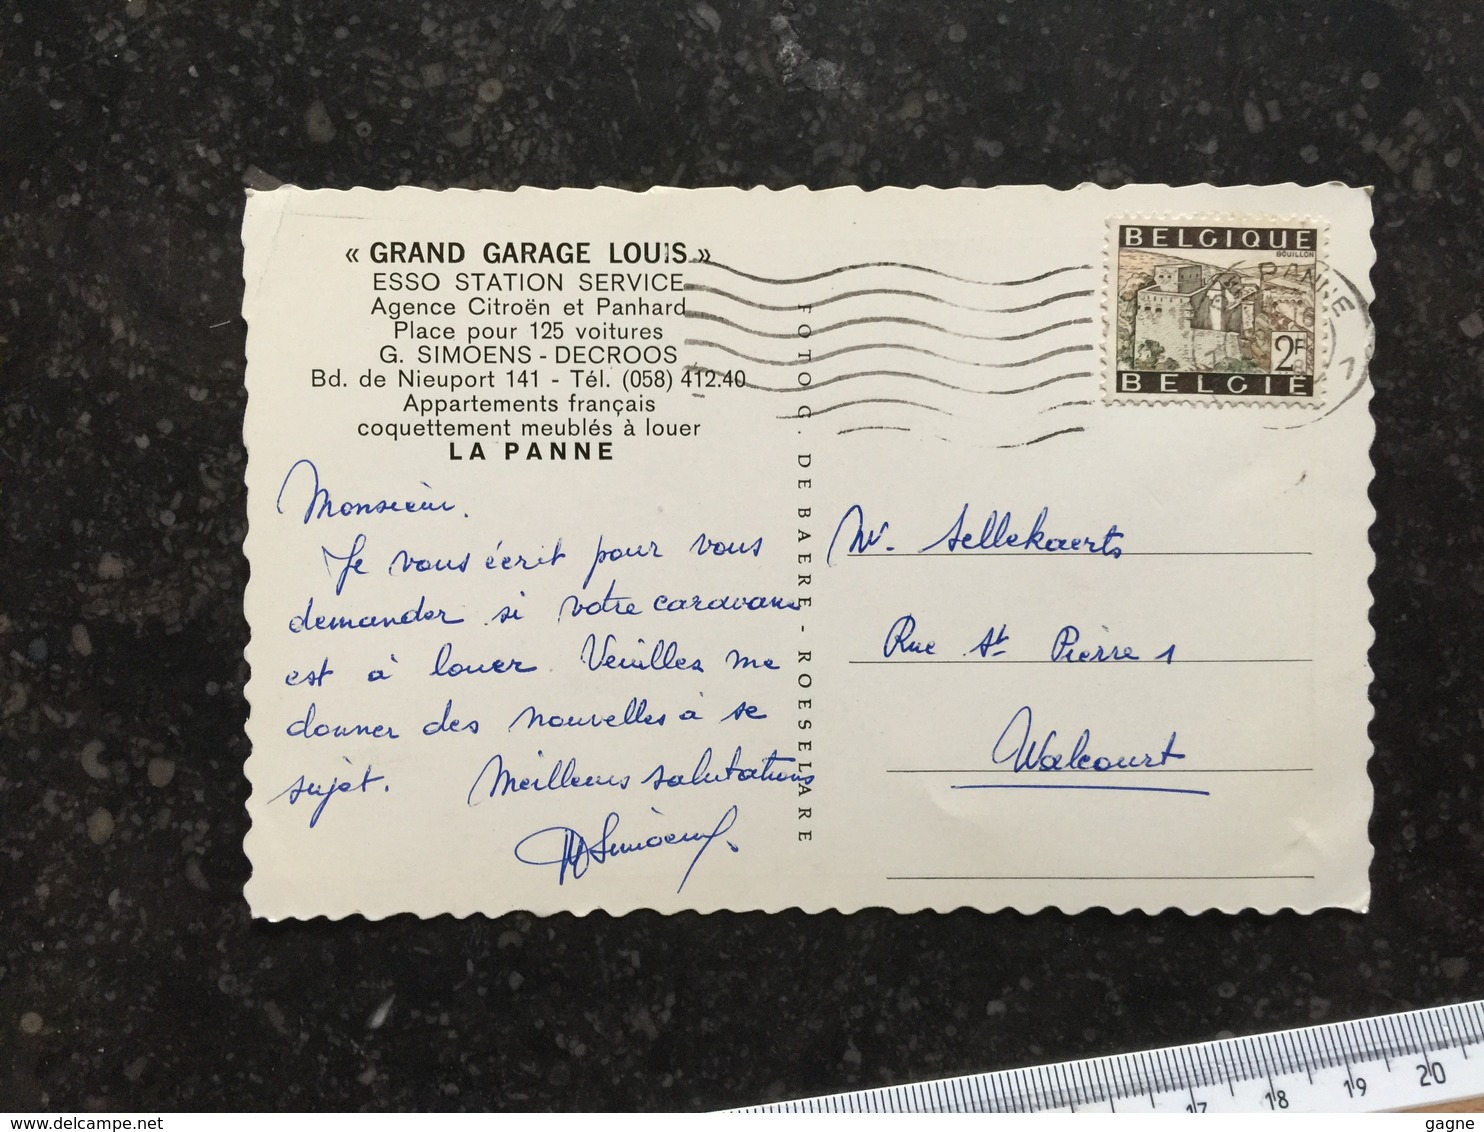 « GRAND GARAGE LOUIS »
ESSO STATION SERVICE
Agence Citroën et Panhard
Place pour 125 voitures
G. SIMOENS - DECROOS
Bd. de Nieuport 141 - Tél. (058) 412.40
Appartements français
coquettement meublés à louer
LA PANNE
Monsieur.
Je vous écrit pour vous
demander si votre caravane
est à louer. Veuillez me
donner des nouvelles à se
sujet. Meilleurs salutations
Simoens
FOTO G. DE BAERE - ROESELARE
BELGIQUE
BOUILLON
2F
BELGIË
PANNE
Mr. Sellekaerts
Rue St Pierre 1
Walcourt
17 18 19 20
delcampe.net
gagne